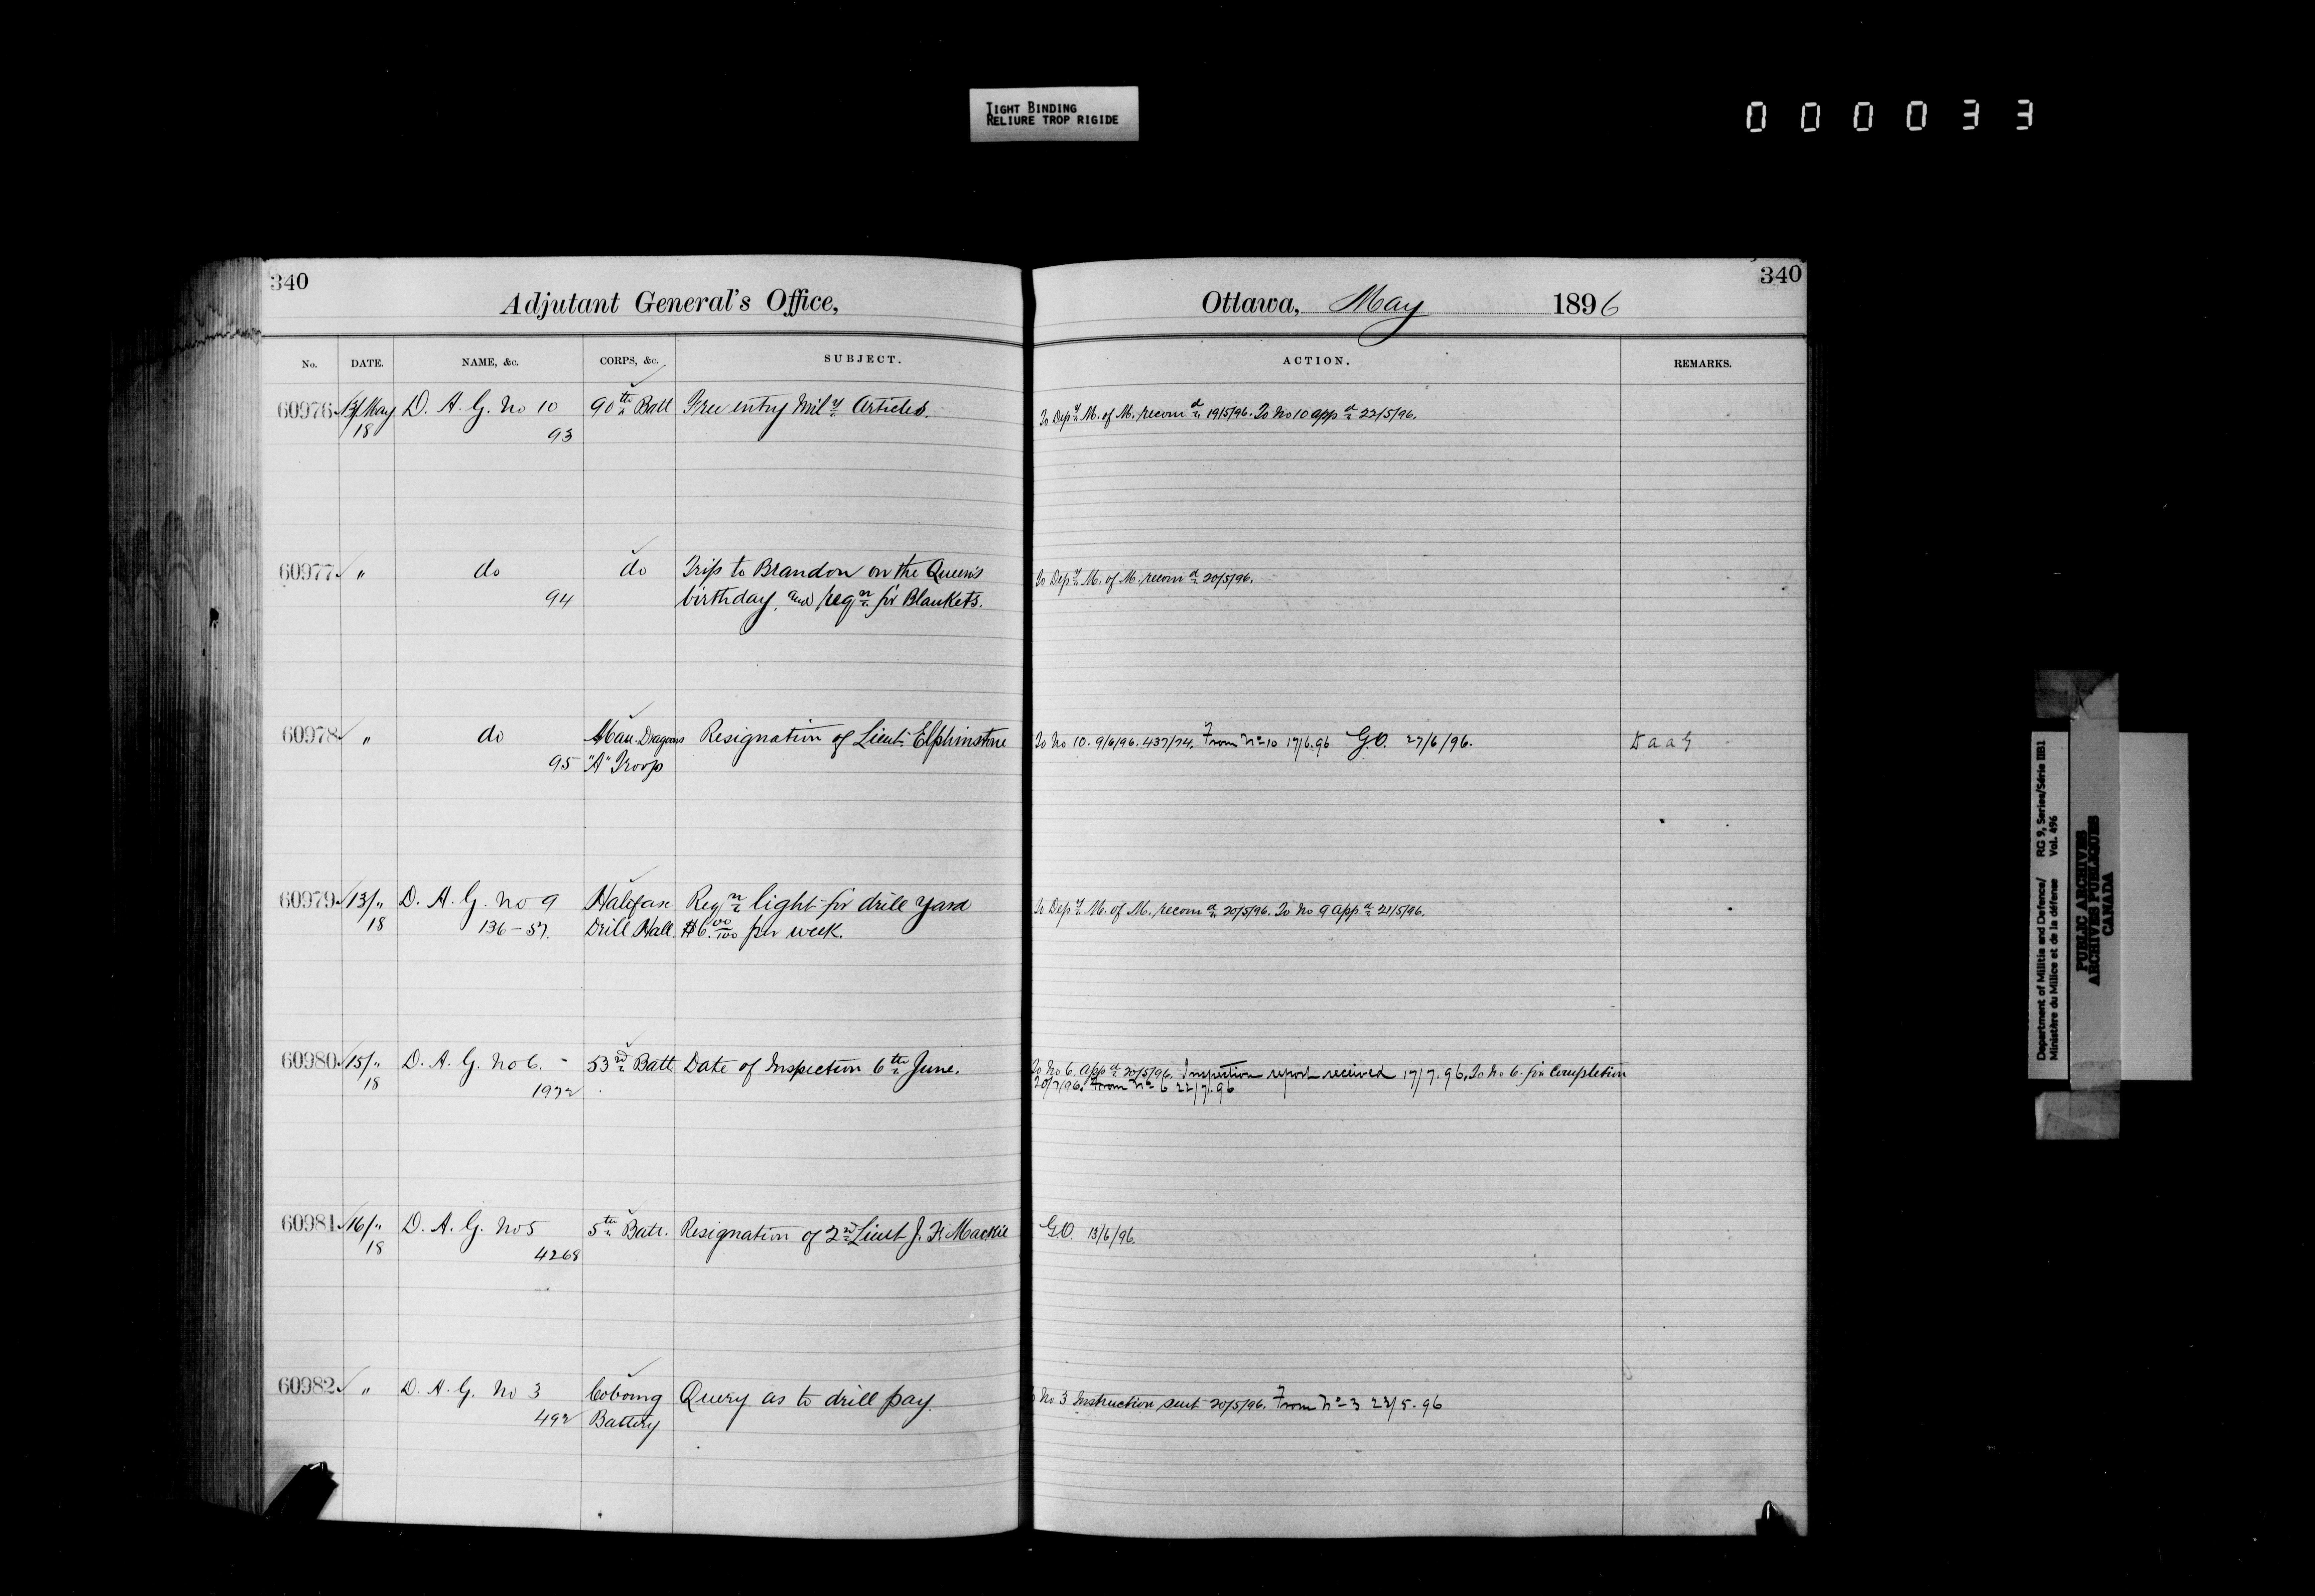 TIGHT BINDING
RELIURE TROP RIGIDE
000033
340
Adjutant General's Office,
No. DATE. NAME, &c. CORPS, &c. SUBJECT.
60976 13/May D. A. G. No 10 90th Batt Free entry Mily Articles.
18 93
60977 " do do Trip to Brandon on the Queen's
94 birthday, and reqn for Blankets.
60978 " do Man. Dragoons Resignation of Lieut. Elphinstone
95 "A" Troop
60979 13/" D. A. G. No 9 Halifax Reqn light for drill yard
18 136-57. Drill Hall. $6.00/100 per week.
60980 15/" D. A. G. No 6. - 53rd Batt Date of Inspection 6th June.
18 1972
60981 16/" D. A. G. No 5 5th Batt. Resignation of 2nd Lieut J. F. Mackie
18 4268
60982 " D. A. G. No 3 Cobourg Query as to drill pay.
492 Battery
340
Ottawa, May 1896
ACTION. REMARKS.
To Depy M. of M. recomd 19/5/96. To No 10 appd 22/5/96.
To Depy M. of M. recomd 20/5/96.
To No 10. 9/6/96. 437/74. From No 10 17/6.96 G.O. 27/6/96. D a a G
To Depy M. of M. recomd 20/5/96. To No 9 appd 21/5/96.
To No 6. appd 20/5/96. Inspection report received 17/7.96. To No 6. for completion
20/7/96. From No 6 22/7.96
G.O. 13/6/96.
No 3 Instruction sent 20/5/96. From No 3 23/5.96
Department of Militia and Defence/ RG 9, Series/Série IIB1
Ministère du Milice et de la défense Vol. 496
PUBLIC ARCHIVES
ARCHIVES PUBLIQUES
CANADA